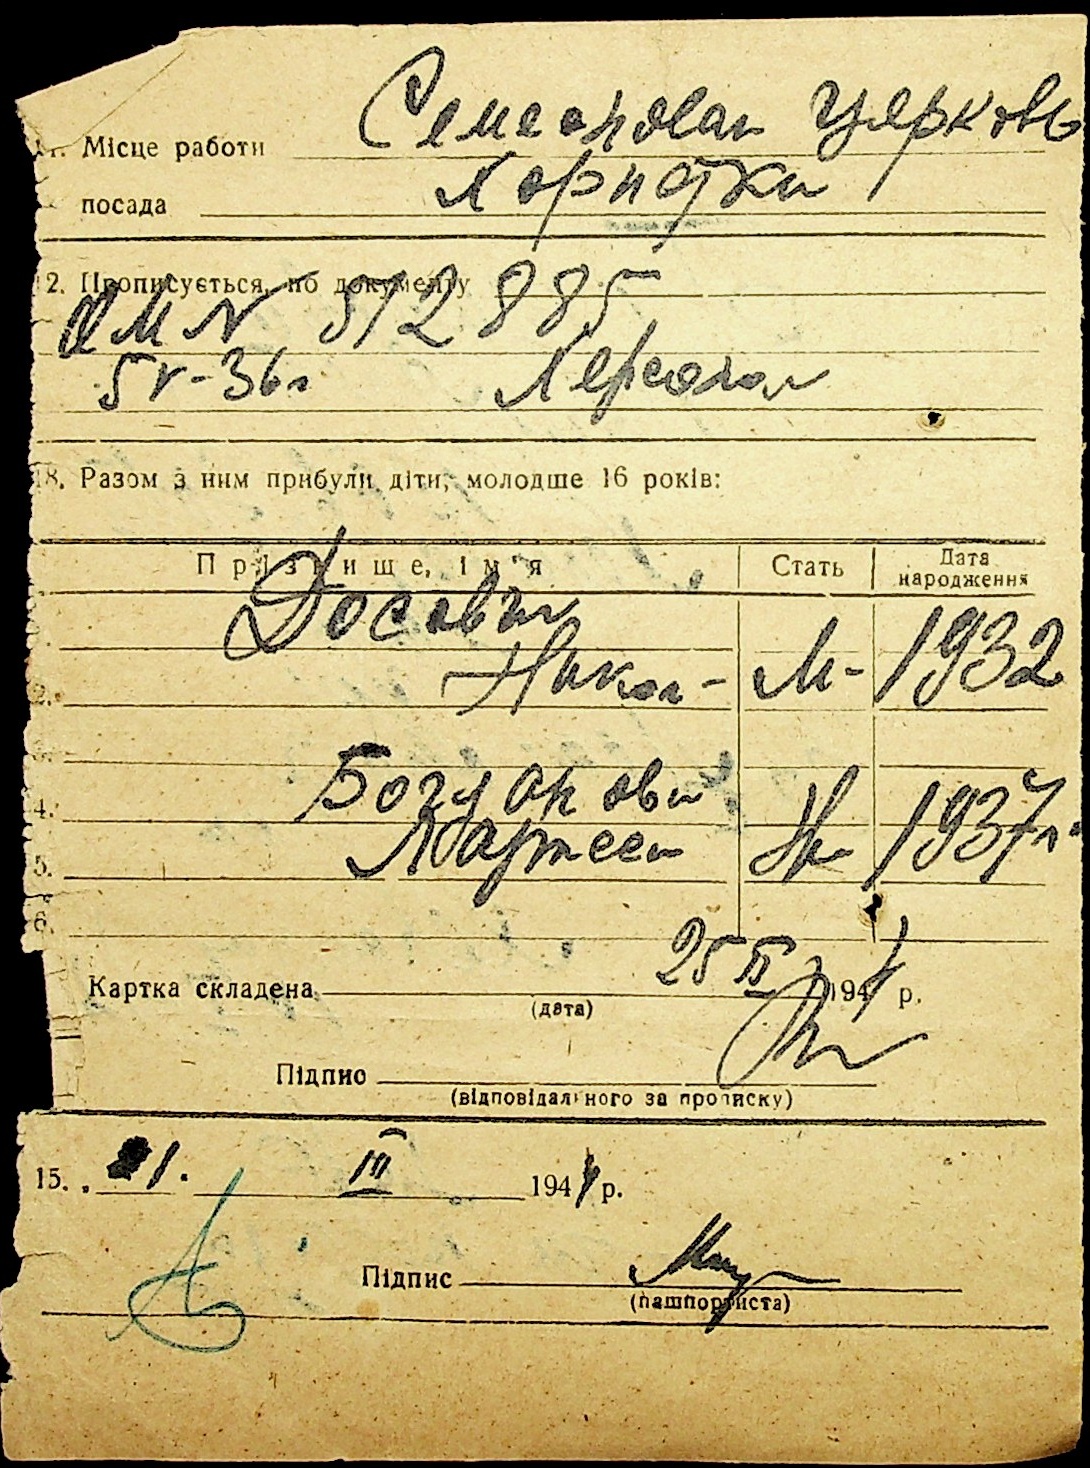 11. Місце работи Семеоновая Церковь
посада Хористки
12. Прописується, по документу
№ 512885
5 V-36г Херсоном
18. Разом з ним прибули діти, молодше 16 років:
Прізвище, ім'я Стать Дата народження
1.
2. М- 1932
3.
4. Богданови
5. Ж 1937г.
6.
Картка складена 25 II 1944 р.
(дата)
Підпис
(відповідального за прописку)
15. „ 1. III 1944 р.
Підпис
(пашпортиста)